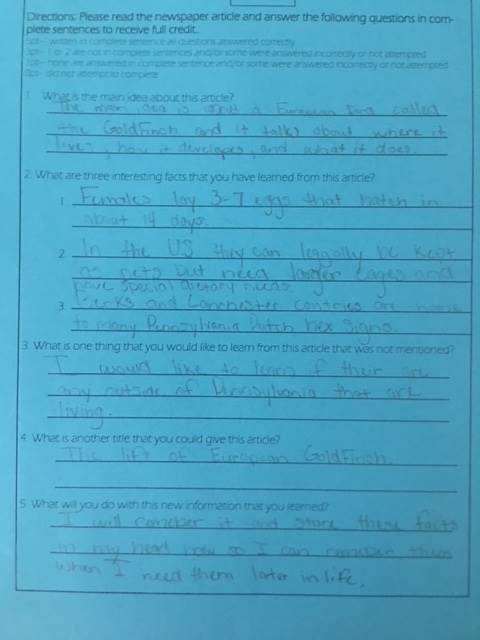 Directions: Please read the newspaper article and answer the following questions in com-
plete sentences to receive full credit.
5pt- written in complete sentence all questions answered correctly
3pt- 1 or 2 are not in complete sentences and/or some were answered incorrectly or not attempted
1pt- none are answered in complete sentence and/or some were answered incorrectly or not attempted
0pt- did not attempt to complete
1. What is the main idea about this article?
The main idea is a European called
the GoldFinch and it talks about where it
lives, how it developes, and what it does.
2. What are three interesting facts that you have learned from this article?
1. Females lay 3-7 eggs that hatch in
about 14 days.
2. In the US they can leggally be kept
as pets but need larger cages and
have special dietary needs.
3. Berks and Lanchester contries are home
to many Pennsylvania Dutch hex signs.
3. What is one thing that you would like to learn from this article that was not mentioned?
I would like to learn if ther are
any outside of Pennsylvania that are
living.
4. What is another title that you could give this article?
The life of European GoldFinch.
5. What will you do with this new information that you learned?
I will remeber it and store these facts
in my head now so I can remeber them
when I need them later in life.